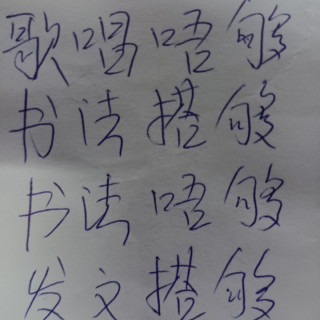 歌唱唔够
书法搭够
书法唔够
发文搭够